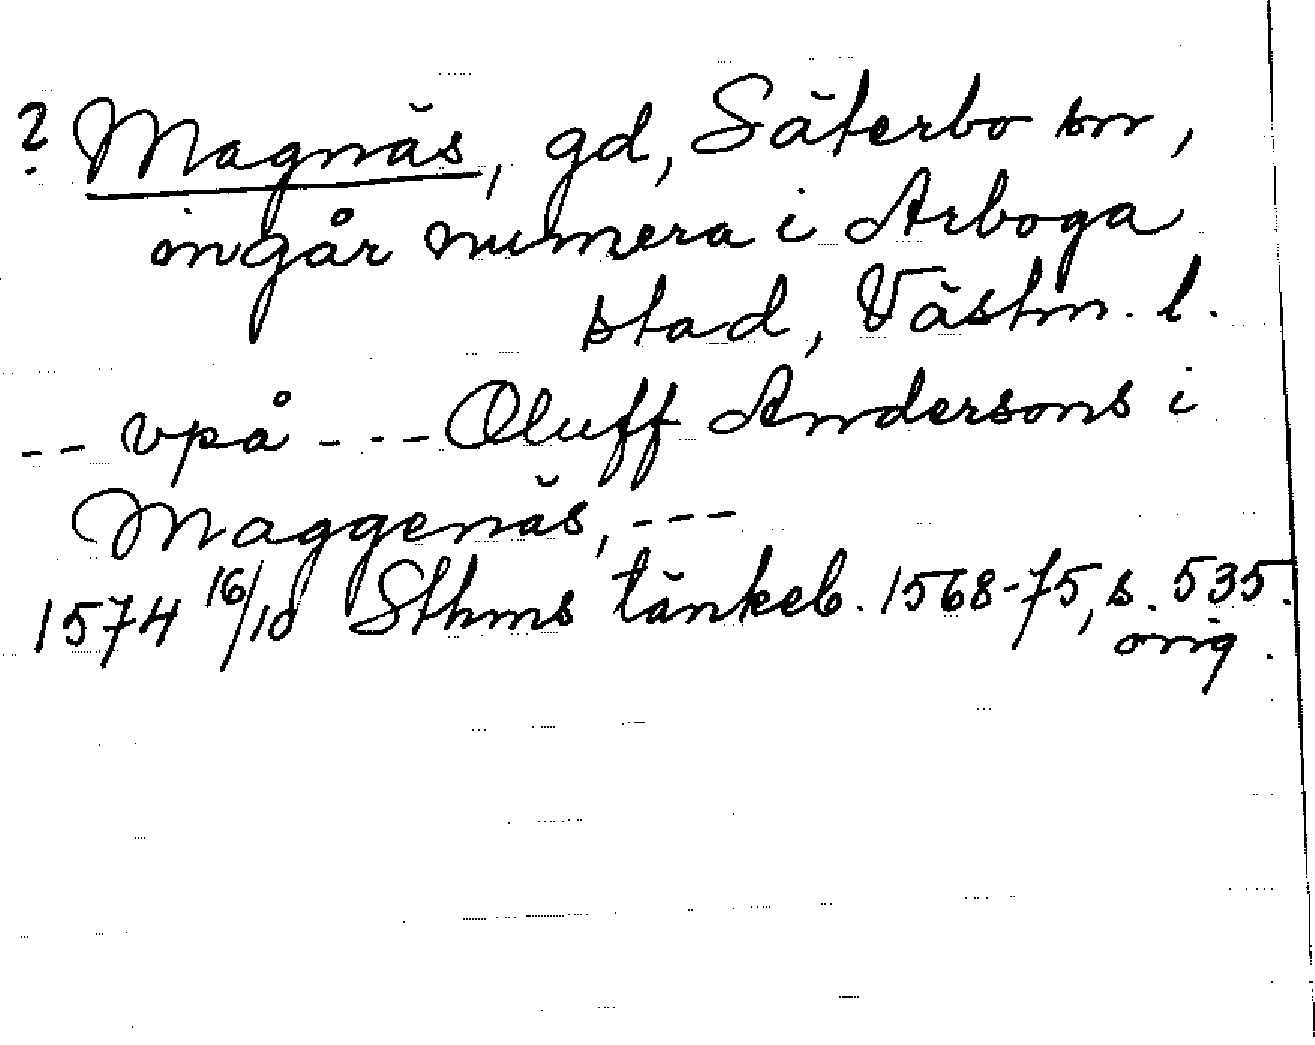 ? Magnäs, gd, Säterbo sn,
ingår numera i Arboga
stad, Västm. l.
-- vpå --- Oluff Andersons i
Maggenäs, ---
1574 16/10 Sthms tänkeb. 1568-75, s. 535.
orig.